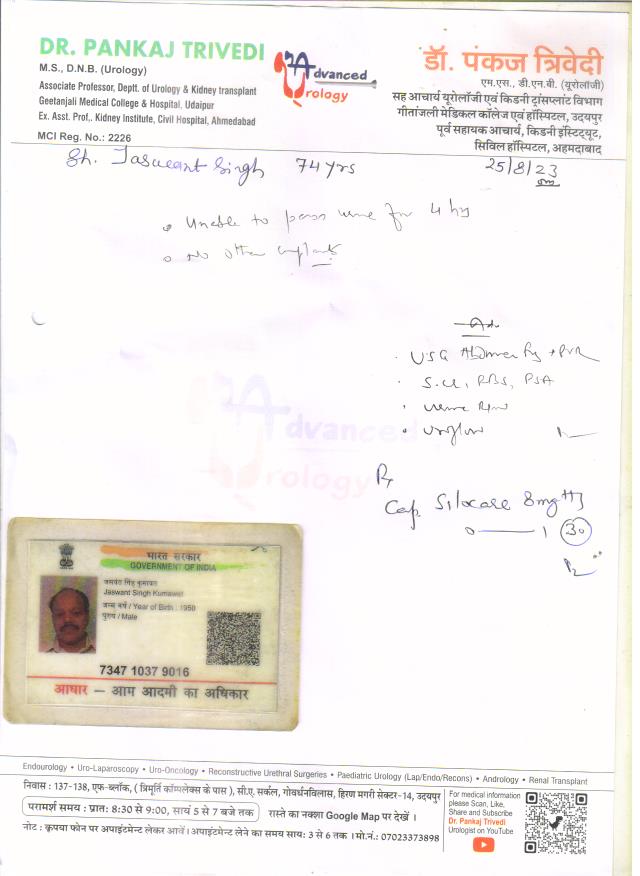 DR. PANKAJ TRIVEDI
M.S., D.N.B. (Urology)
Associate Professor, Deptt. of Urology & Kidney transplant
Geetanjali Medical College & Hospital, Udaipur
Ex. Asst. Prof., Kidney Institute, Civil Hospital, Ahmedabad
MCI Reg. No.: 2226
Advanced
Urology
डॉ. पंकज त्रिवेदी
एम.एस., डी.एन.बी. (यूरोलॉजी)
सह आचार्य यूरोलॉजी एवं किडनी ट्रांसप्लांट विभाग
गीतांजली मेडिकल कॉलेज एवं हॉस्पिटल, उदयपुर
पूर्व सहायक आचार्य, किडनी इंस्टिट्यूट,
सिविल हॉस्पिटल, अहमदाबाद
Sh. Jaswant Singh 74 yrs 25/8/23
• Unable to pass urine for 4 hrs
• No other
Adv.
• USG Abdomen + PVR
• S.Cr, RBS, PSA
• urine R/M
• uroflow
Advanced
Urology
Rx
Cap Silocare 8mg
0 — 1 30
भारत सरकार
GOVERNMENT OF INDIA
जसवंत सिंह कुमावत
Jaswant Singh Kumawat
जन्म वर्ष / Year of Birth : 1950
पुरुष / Male
7347 1037 9016
आधार – आम आदमी का अधिकार
Endourology • Uro-Laparoscopy • Uro-Oncology • Reconstructive Urethral Surgeries • Paediatric Urology (Lap/Endo/Recons) • Andrology • Renal Transplant
निवास : 137-138, एफ-ब्लॉक, ( त्रिमूर्ति कॉम्पलेक्स के पास ), सी.ए. सर्कल, गोवर्धनविलास, हिरण मगरी सेक्टर-14, उदयपुर
परामर्श समय : प्रात: 8:30 से 9:00, सायं 5 से 7 बजे तक रास्ते का नक्शा Google Map पर देखें ।
नोट : कृपया फोन पर अपाइंटमेन्ट लेकर आवें । अपाइंटमेन्ट लेने का समय साय: 3 से 6 तक । मो.नं.: 07023373898
For medical information
please Scan, Like,
Share and Subscribe
Dr. Pankaj Trivedi
Urologist on YouTube